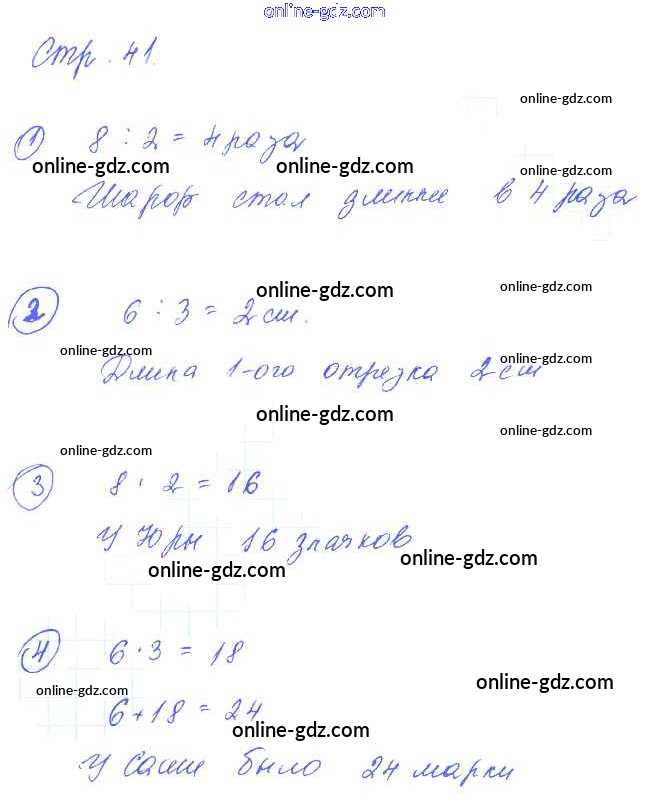 online-gdz.com
Стр. 41.
online-gdz.com
1 8 : 2 = 4 раза
online-gdz.com online-gdz.com online-gdz.com
Шарф стал длиннее в 4 раза
online-gdz.com online-gdz.com
2 6 : 3 = 2 см.
online-gdz.com online-gdz.com
Длина 1-ого отрезка 2 см
online-gdz.com
online-gdz.com
online-gdz.com
3 8 · 2 = 16
У Юры 16 значков
online-gdz.com online-gdz.com
4 6 · 3 = 18
online-gdz.com online-gdz.com
6 + 18 = 24
online-gdz.com
У Саши было 24 марки